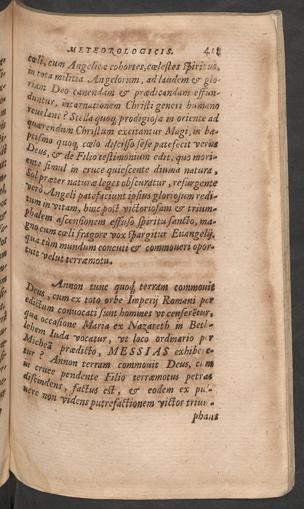 METEOROLOGICIS. 413
cœli, cum Angelicæ cohortes, cœlestes spiritus,
in tota militia Angelorum, ad laudem & glo-
riam Deo canendam & prædicandam effun-
duntur, incarnationem Christi generi humano
revelant? Stella quoq; prodigiosa in oriente ad
quærendum Christum excitantur Magi, in ba-
ptismo quoq; cœlo discisso sese patefecit verus
Deus, & de Filio testimonium edit, quo mori-
ente simul in cruce quiescente divina natura,
Sol præter naturæ leges obscuratur, resurgente
vero Angeli patefaciunt ipsius gloriosum redi-
tum in vitam, hunc post victoriosam & trium-
phalem ascensionem effuso spiritu sancto, ma-
gno cum cœli fragore vox spargitur Euangelij,
qua tùm mundum concuti & commoveri opor-
tuit velut terræmotu.
Annon tunc quoq; terram commouit
Deus, cum ex toto orbe Imperij Romani per
edictum conuocati sunt homines vt censerẽtur,
qua occasione Maria ex Nazareth in Beth-
lehem Iuda vocatur, vt loco ordinario per
Micheã prædicto, MESSIAS exhibere-
tur? Annon terram commouit Deus, cum
in cruce pendente Filio terræmotus petras
discindens, factus est, & eodem ex pul-
uere non videns putrefactionem victor trium-
phans